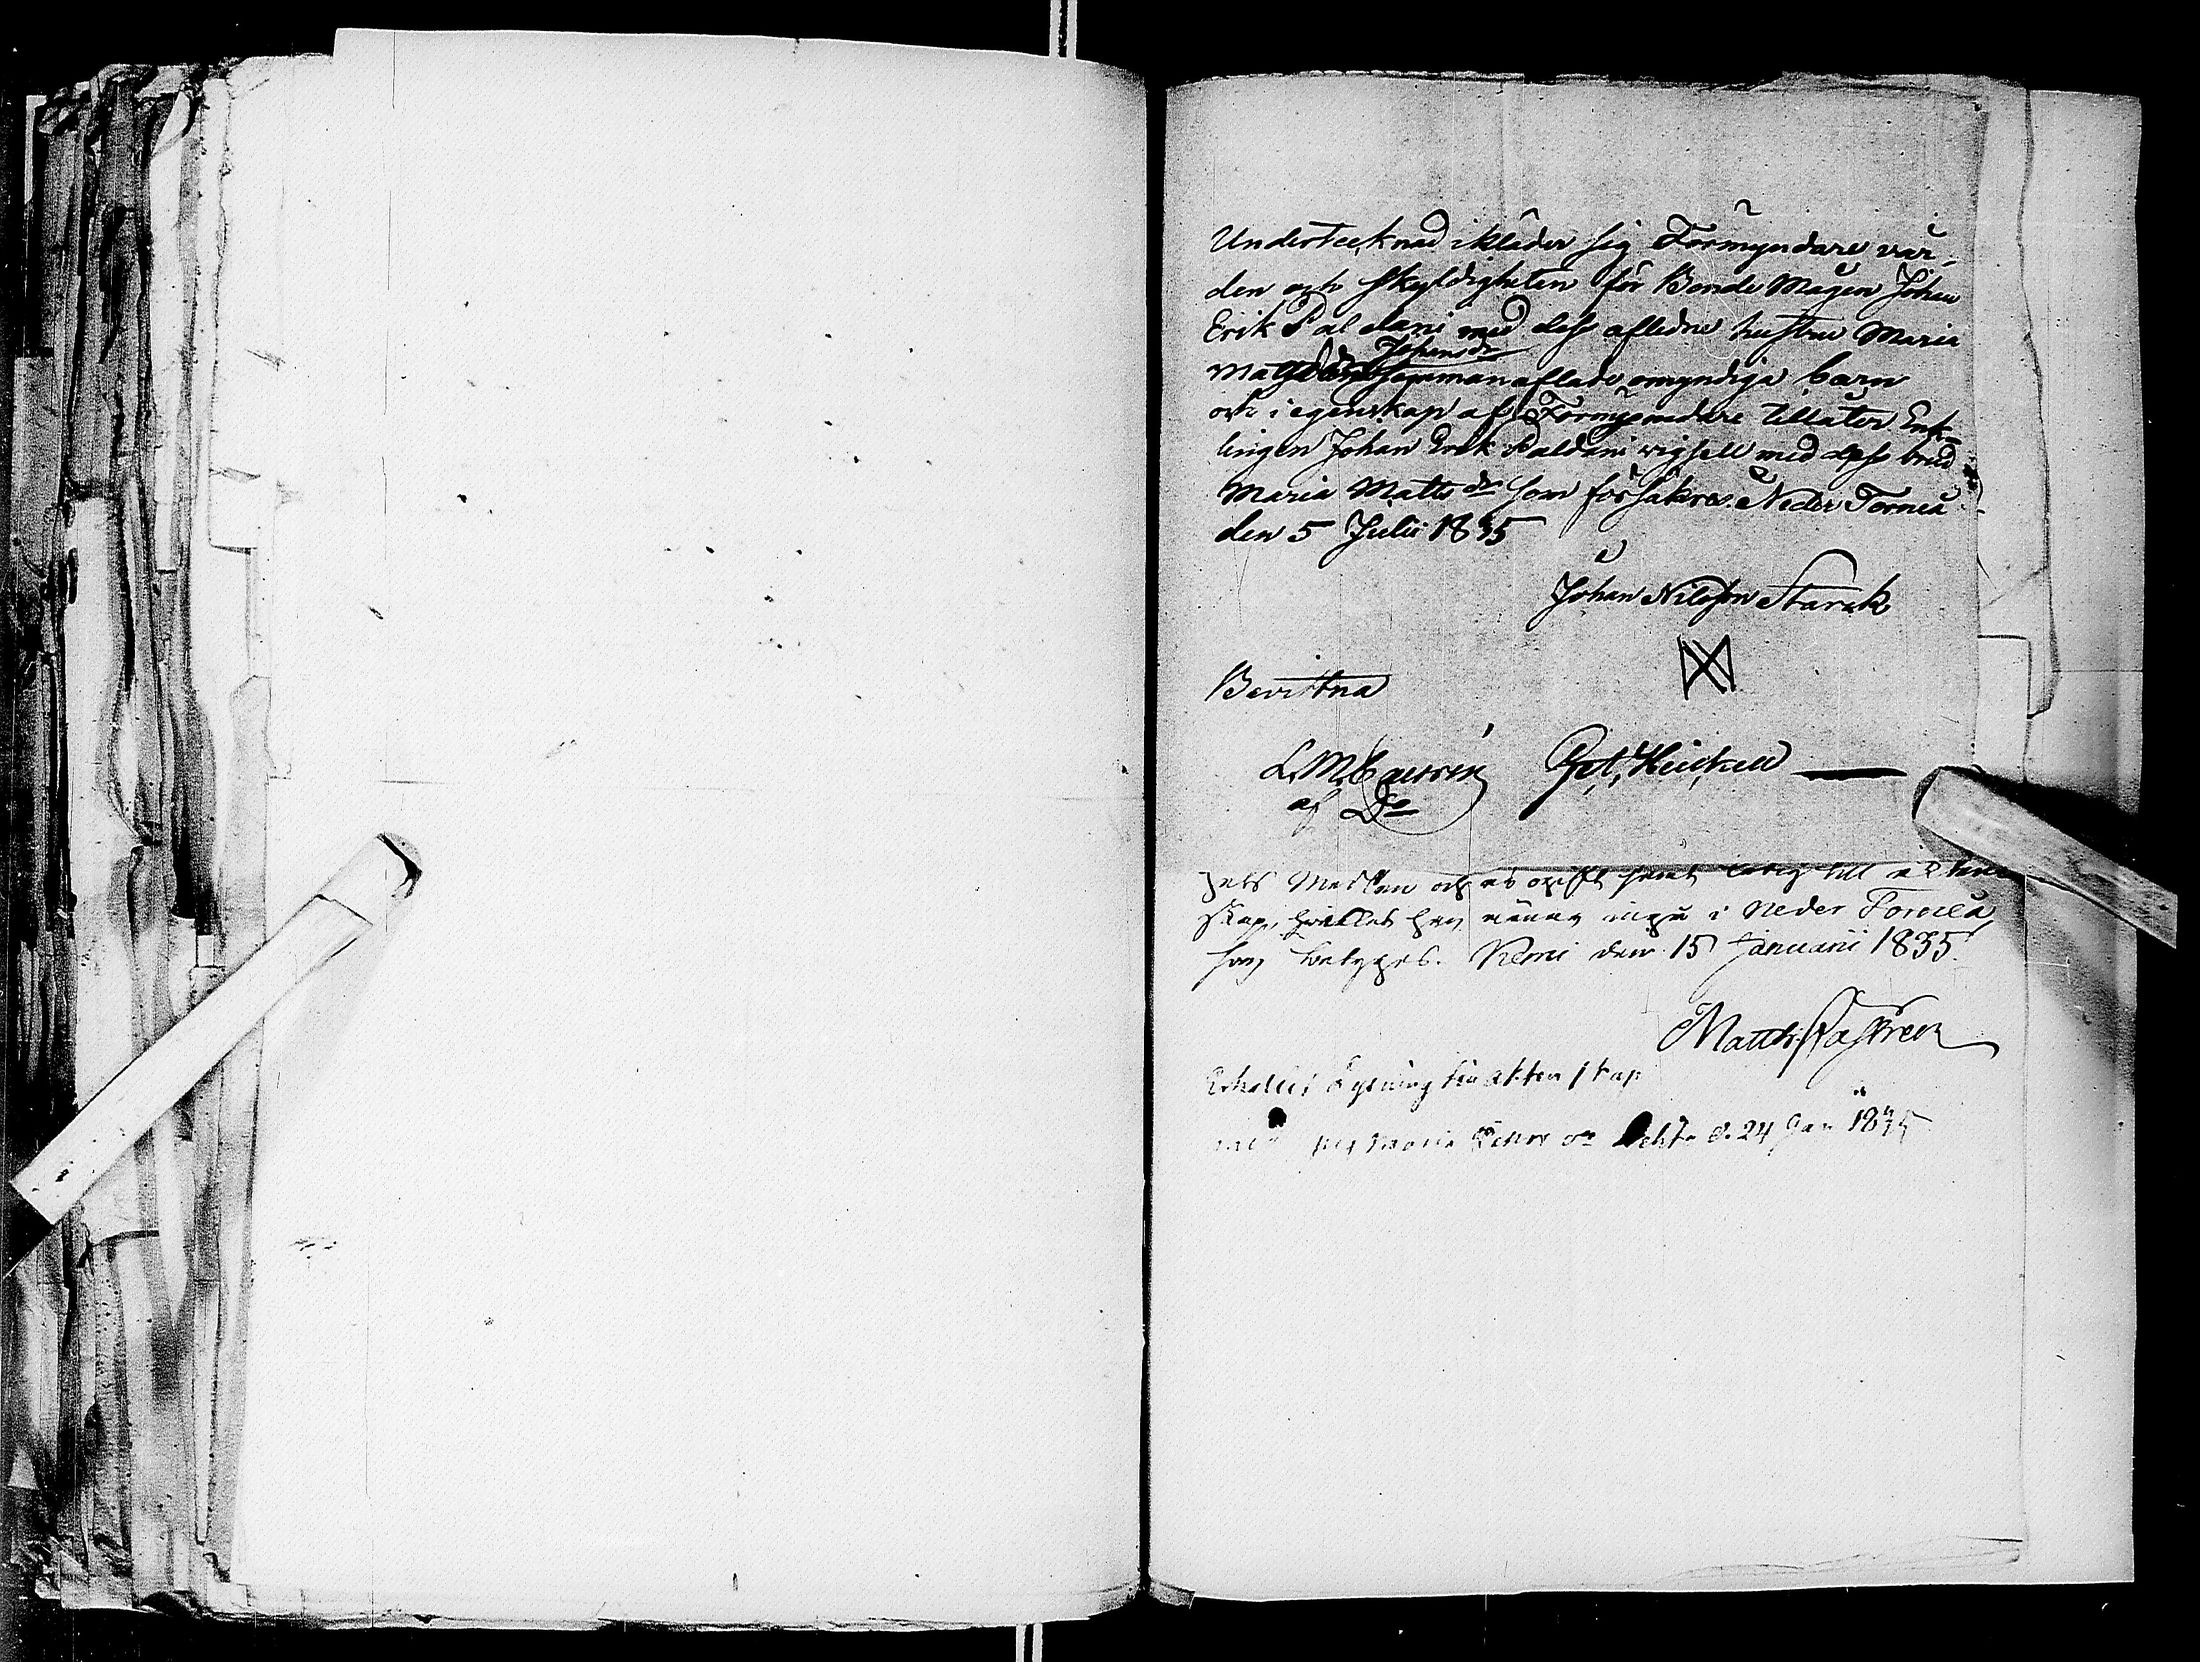 Undertecknad ikläder sig Förmyndare vår-
den och skyldigheten för Bonde Mågen Johan
Erik Paldani med dess aflidne hustru Maria
Johansdr
Magdal sammanaflade omyndiga barn
och i egenskap af Förmyndare tillåter Enk-
lingen Johan Erik Paldani vigsell med dess brud
Maria Matts dr som försäkras. Neder Torneå
den 5 Julii 1835
Johan Nilsson Starck
Bevittna
L. M. Castrén
af Do
Pet, Heickell
skap, hvilket han ämnar ingå i Neder Torneå,
som betyges. Kemi den 15 Januarii 1835.
Matth. Castrén
Erhållit Lysning till äktenskap
med Maria d. 24 Jan 1835